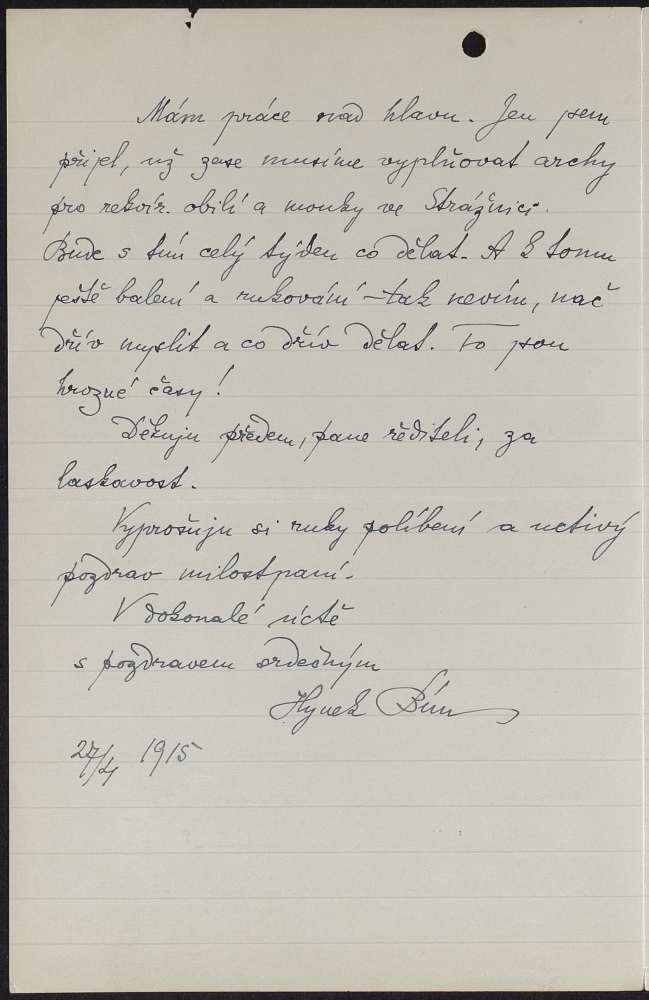 Mám práce nad hlavu. Jen jsem
přijel, už zase musíme vyplňovat archy
pro rekvir. obilí a mouky ve Strážnici.
Bude s tím celý týden co dělat. A k tomu
ještě balení a rukování – tak nevím, nač
dřív myslit a co dřív dělat. To jsou
hrozné časy!
Děkuju předem, pane řediteli, za
laskavost.
Vyprošuju si ruky políbení a uctivý
pozdrav milostpaní.
V dokonalé úctě
s pozdravem srdečným
Hynek Bím
27/4 1915